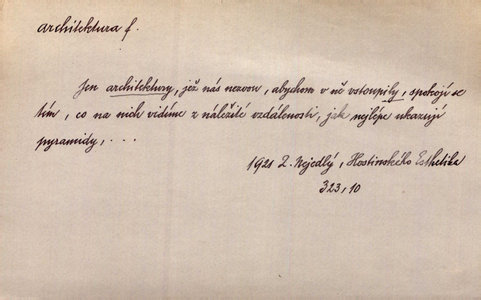 architektura f.
Jen architektury, jež nás nezvou, abychom v ně vstoupily, spokojí se
tím, co na nich vidíme z náležité vzdálenosti, jak nejlépe ukazují
pyramidy, . . .
1921 Z. Nejedlý, Hostinského Esthetika
323, 10